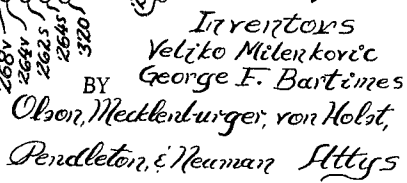 268v
264v
262s
264s
320
Inventors
Veljko Milenkovic
BY George F. Bartimes
Olson, Mecklenburger, von Holst,
Pendleton, & Neuman Attys